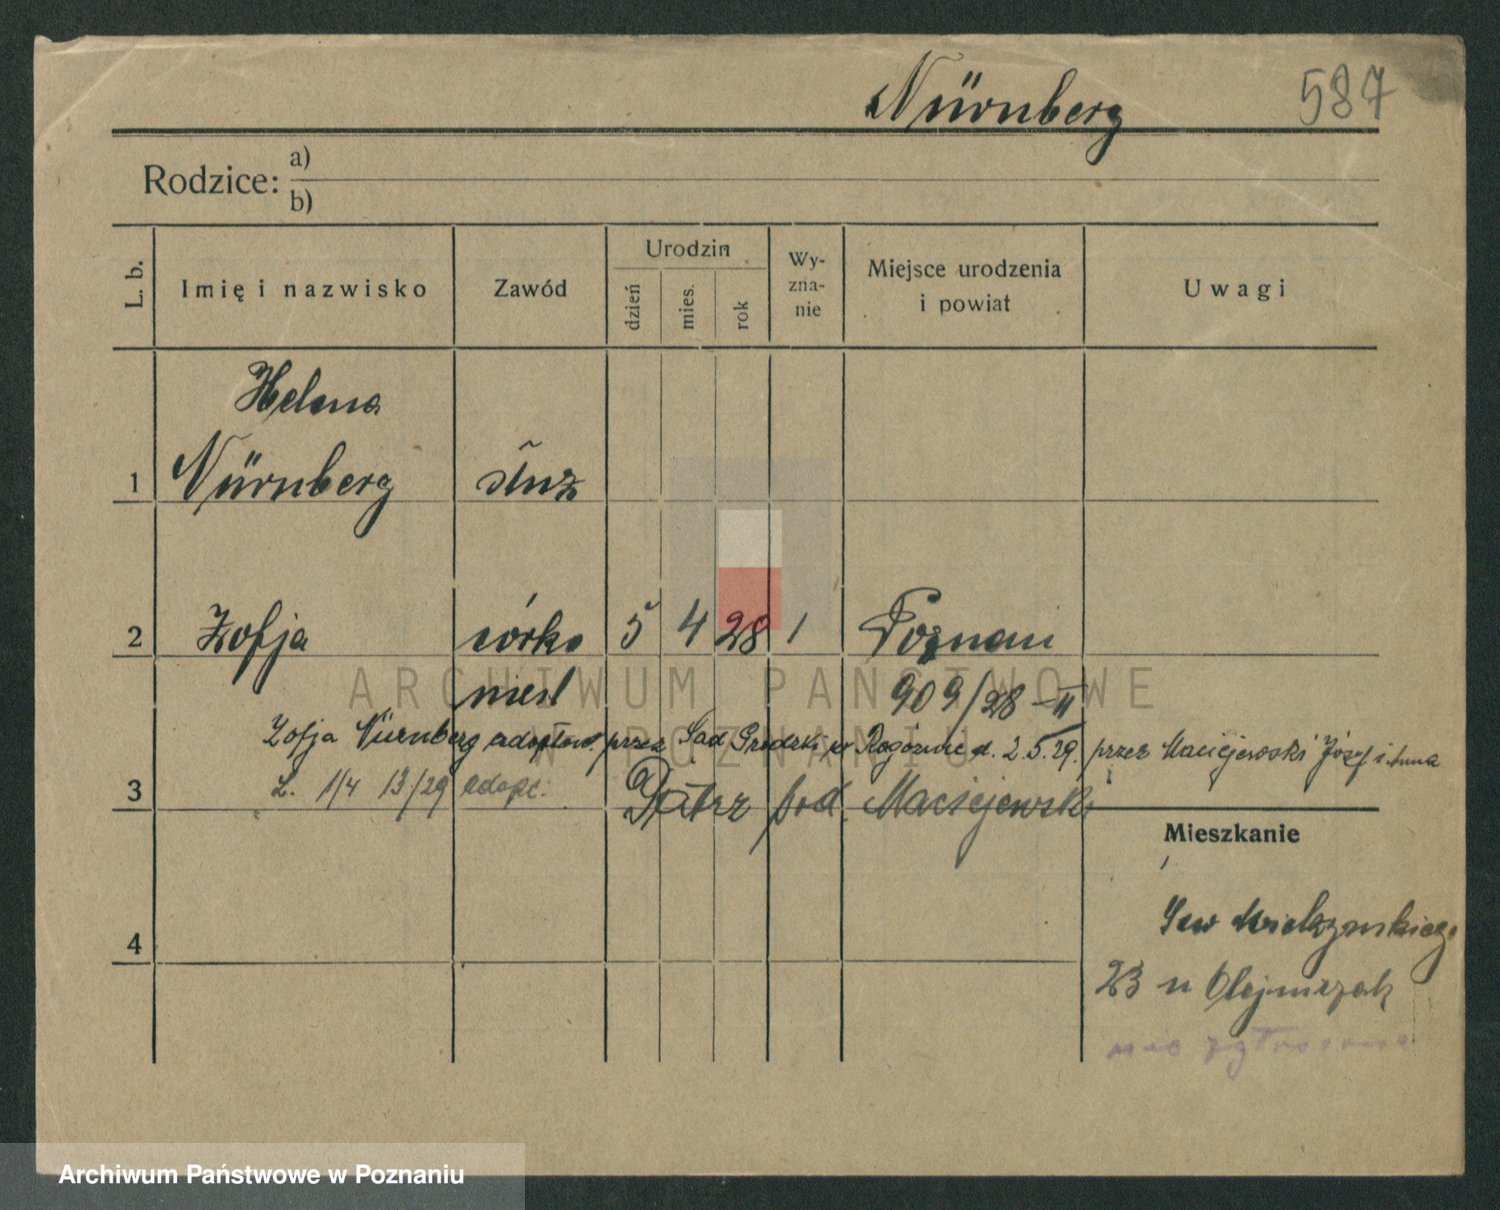 Nürnberg 587
Rodzice: a)
b)
L. b. Imię i nazwisko Zawód Urodzin dzień mies. rok Wy-zna-nie Miejsce urodzenia i powiat Uwagi
Helena
1 Nürnberg służ
2 Zofja córka 5 4 28 1 Poznań
nieśl 909/28 II
Zofja Nürnberg adoptow. przez Sąd Grodzki w Rogoźnie d. 2.5.29. przez Maciejewski Józef i Anna
L. 1/4 13/29 adopc.
3 Patrz pod Maciejewski
Mieszkanie
Sew Mielżyńskiego
4
23 u Olejniczak
nie zgłoszona
ARCHIWUM PAŃSTWOWE
W POZNANIU
Archiwum Państwowe w Poznaniu